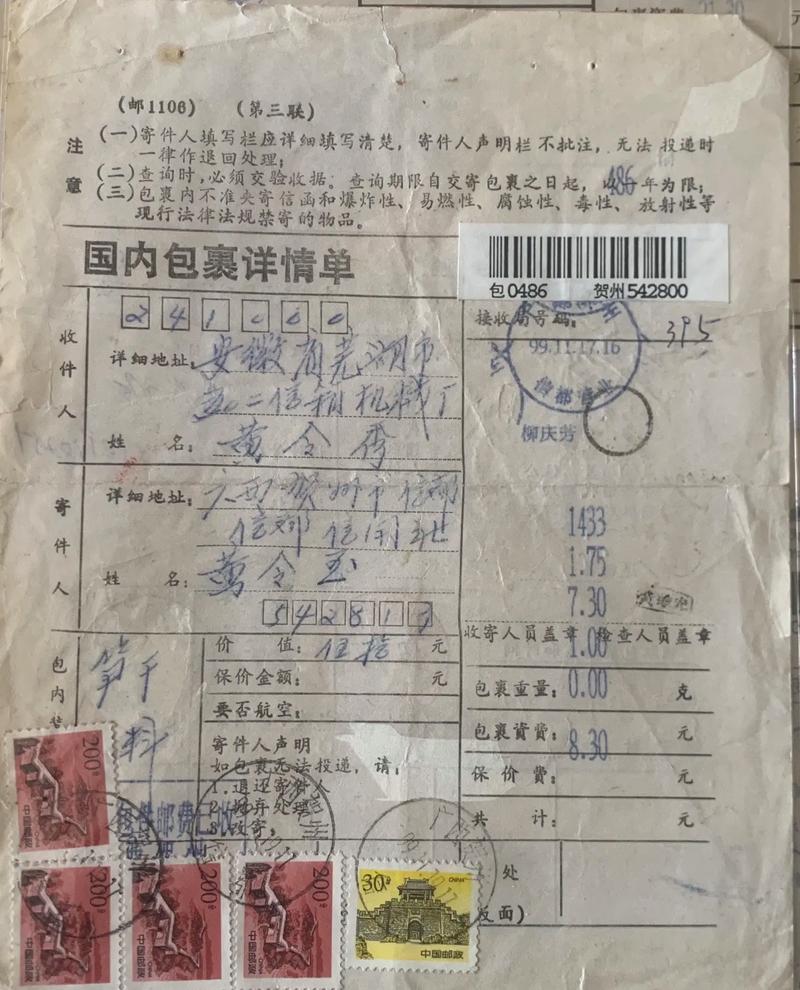 (邮1106) (第三联)
注意
(一)寄件人填写栏应详细填写清楚，寄件人声明栏不批注，无法投递时
一律作退回处理；
(二)查询时，必须交验收据。查询期限自交寄包裹之日起，年为限；
(三)包裹内不准夹寄信函和爆炸性、易燃性、腐蚀性、毒性、放射性等
现行法律法规禁寄的物品。
国内包裹详情单
包0486 贺州542800
接收局号码：
395
99.11.17.16
柳庆芳
收件人
241000
详细地址：安徽省芜湖市
机械厂
姓名：黄令秀
寄件人
详细地址：广西贺州市信都
信都
姓名：黄令玉
542813
1433
1.75
7.30
1.00
0.00
8.30
收寄人员盖章 检查人员盖章
包内装
价值：伍拾元
保价金额：元
要否航空：
寄件人声明
如包裹无法投递，请：
1.退还寄件人
2.抛弃处理
3.改寄：
包裹重量：克
包裹资费：元
保价费：元
共计：元
处
反面)
包件邮费已收
200分
中国邮政
CHINA
200分
中国邮政
CHINA
200分
中国邮政
CHINA
200分
中国邮政
CHINA
30分
CHINA
中国邮政